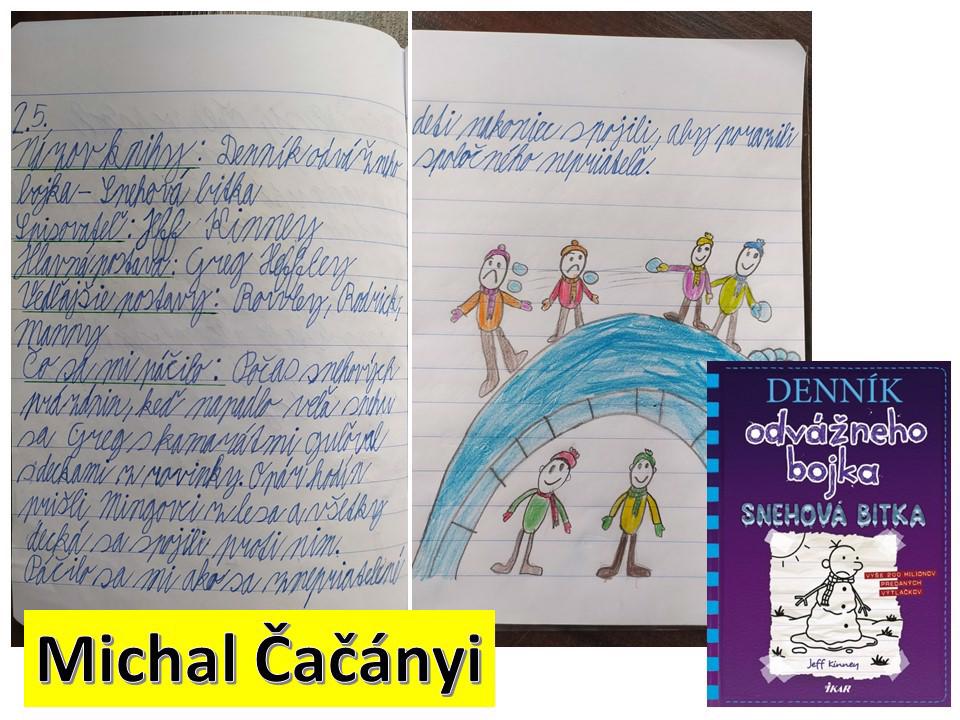 2.5.
Názov knihy: Denník odvážneho
bojka - Snehová bitka
Spisovateľ: Jeff Kinney
Hlavná postava: Greg Heffley
Vedľajšie postavy: Rowley, Rodrick,
Manny
Čo sa mi páčilo: Počas snehových
prázdnin, keď napadlo veľa snehu
sa Greg s kamarátmi guľoval
s deckami z rovinky. O pári hodín
prišli Mingovci z lesa a všetky
decká sa spojili proti nim.
Páčilo sa mi ako sa znepriatelené
deti nakoniec spojili, aby porazili
spoločného nepriateľa.
DENNÍK
odvážneho
bojka
SNEHOVÁ BITKA
VYŠE 200 MILIÓNOV
PREDANÝCH
VÝTLAČKOV
Jeff Kinney
IKAR
Michal Čačányi